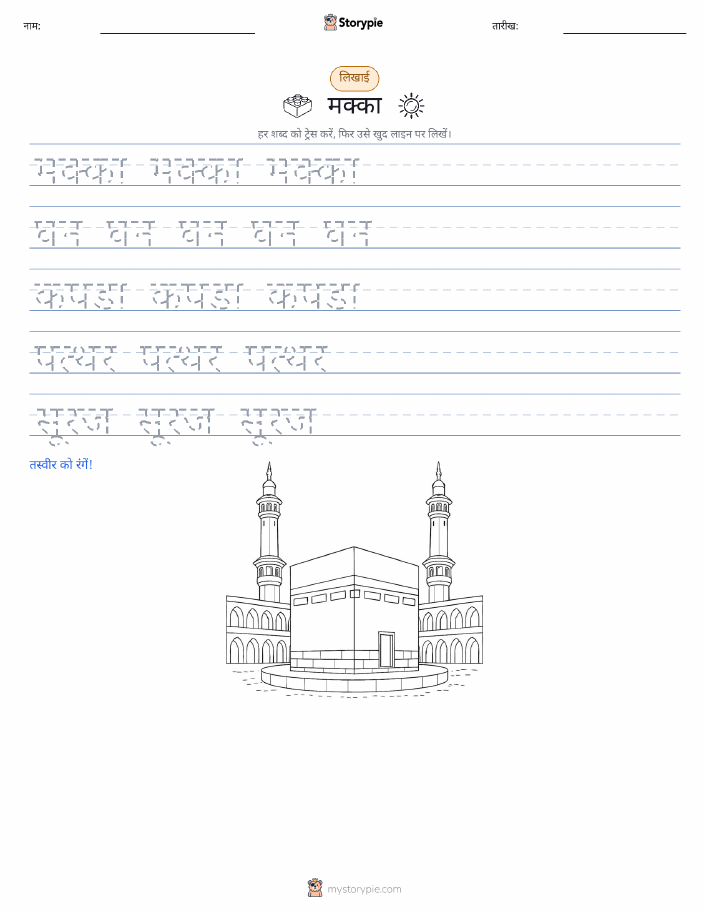 नाम:
Storypie
तारीख:
लिखाई
मक्का
हर शब्द को ट्रेस करें, फिर उसे खुद लाइन पर लिखें।
मक्का मक्का मक्का
घन घन घन घन घन
कपड़ा कपड़ा कपड़ा
पत्थर पत्थर पत्थर
सूरज सूरज सूरज
तस्वीर को रंगें!
mystorypie.com